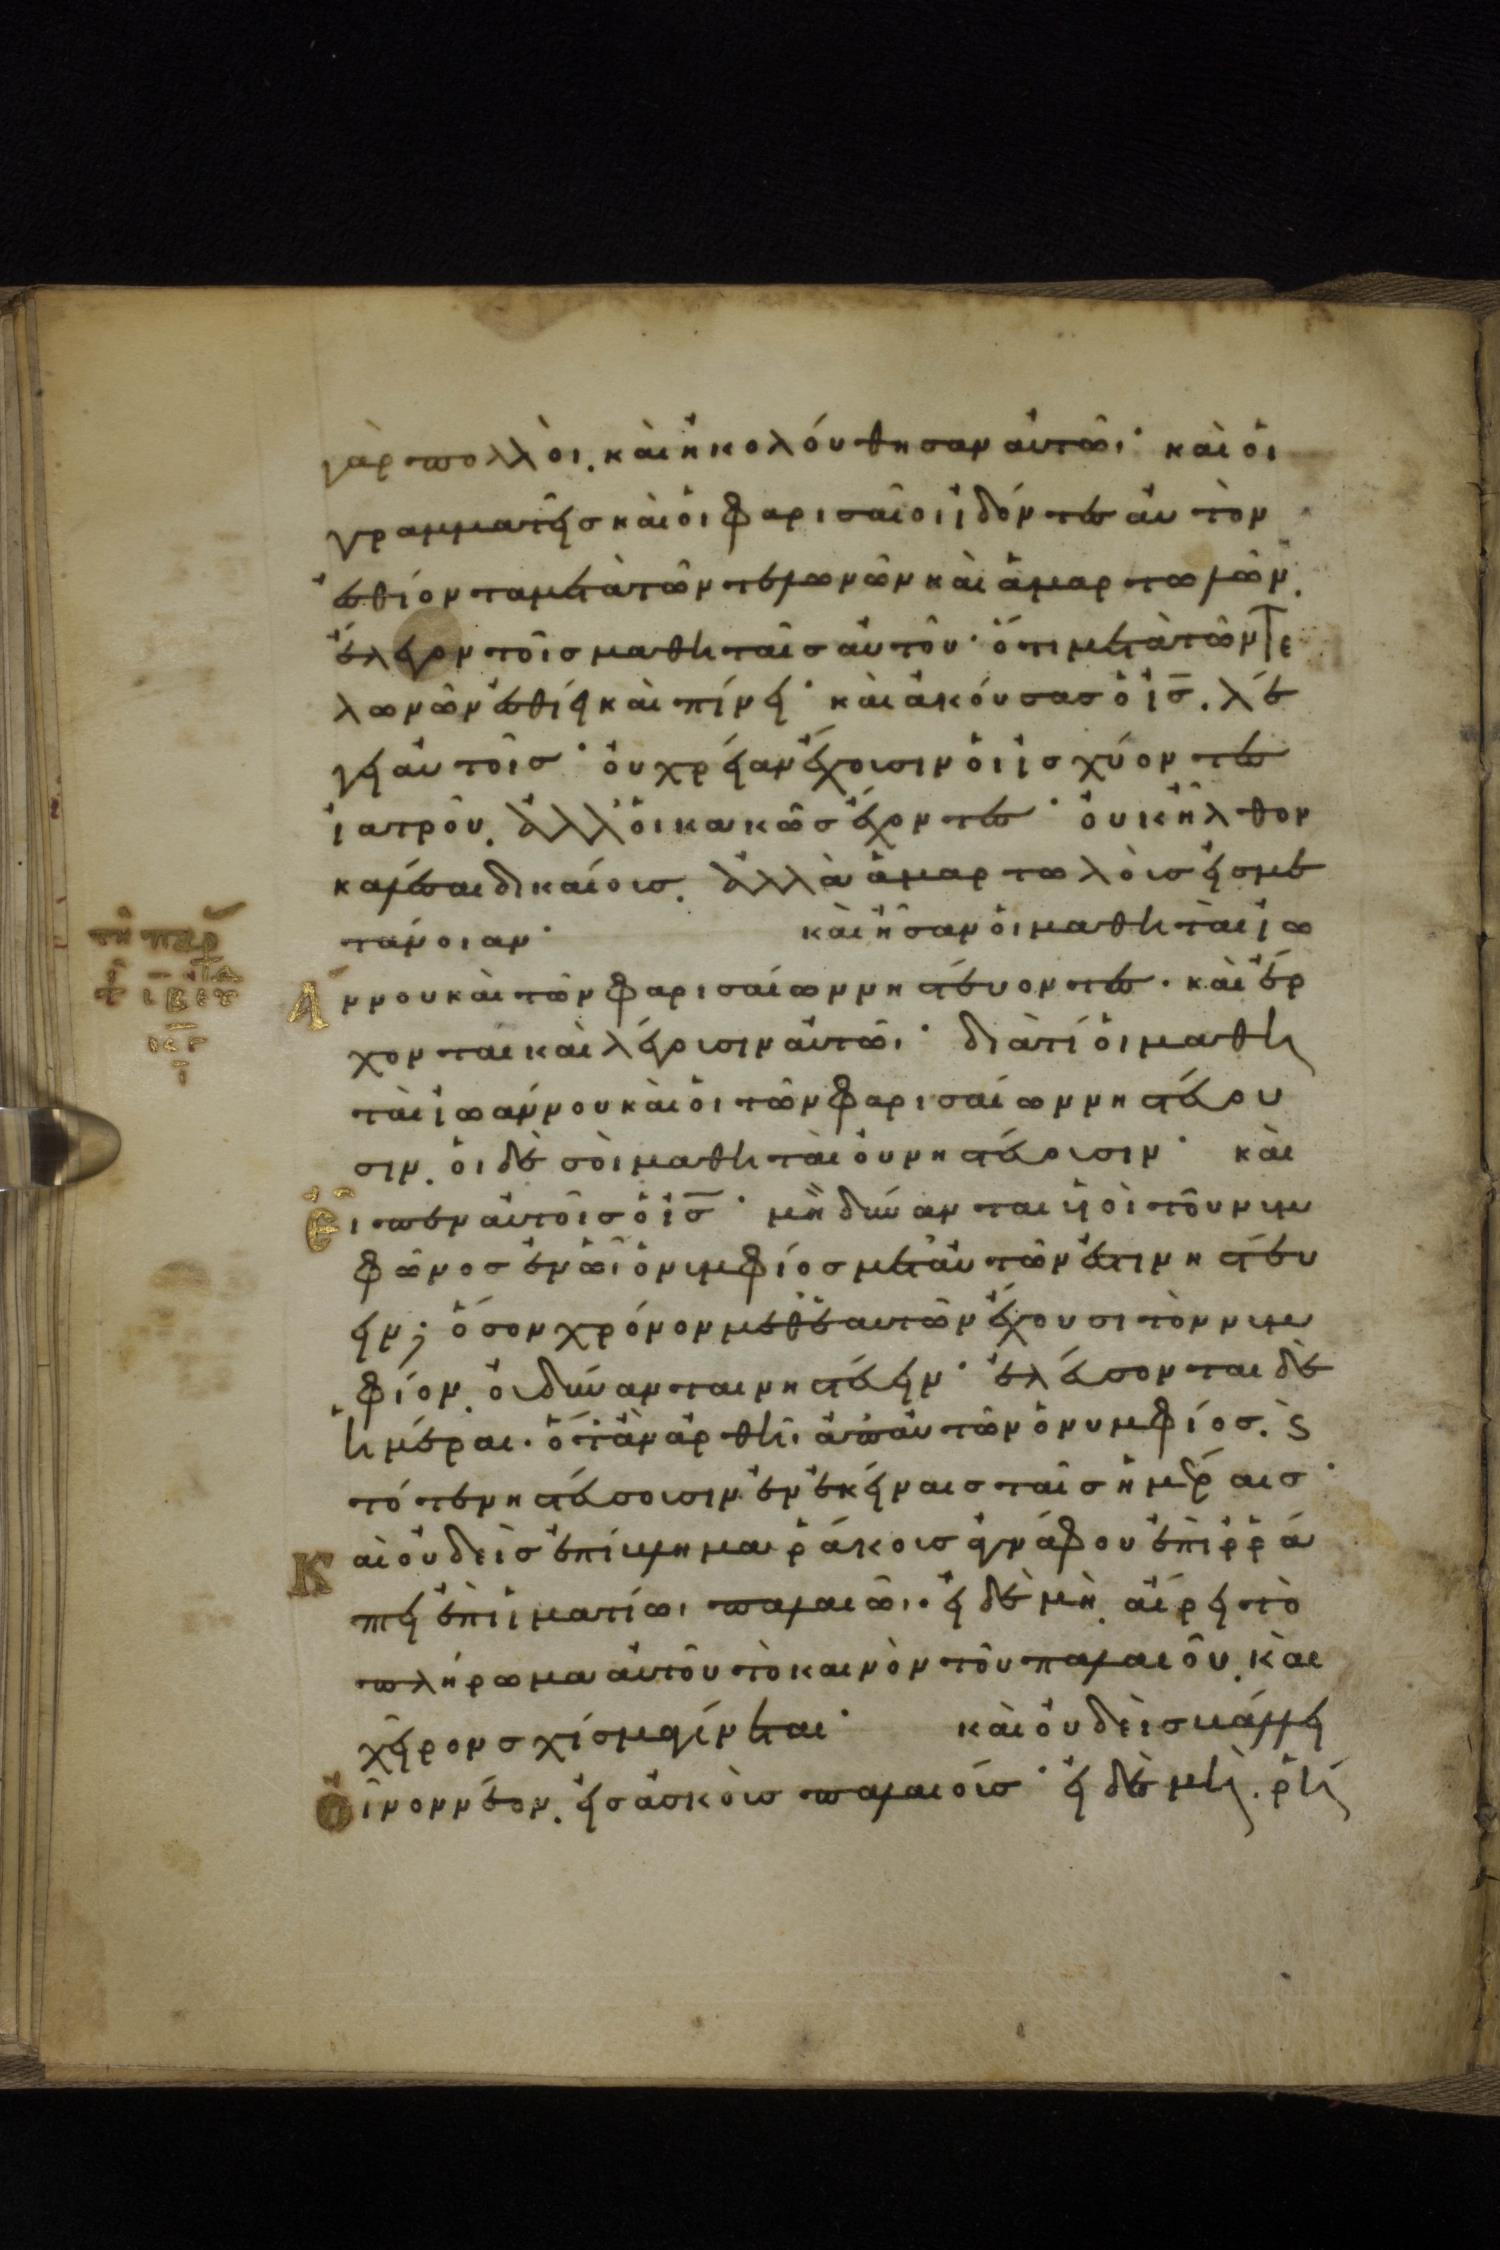 γὰρ πολλὸι. κὰι ἠκολόυθησαν ἀυτῶι· κὰι ὁι
γραμματεῖσ κὰι ὁι φαρισαῖοι ἰδόντεσ ἀυτὸν
ἐσθίοντα μετὰ τῶν τελωνῶν κὰι ἁμαρτωλῶν.
ἔλεγον τοῖσ μαθηταῖσ ἀυτοῦ· ὅτι μετὰ τῶν τε
λωνῶν ἐσθίει κὰι πίνει· κὰι ἀκόυσασ ὁ ἰσ. λέ
γει ἀυτοῖσ· ὀυ χρείαν ἔχοισιν ὁι ἰσχύοντεσ
ἰατροῦ. ἀλλ' ὁι κακῶσ ἔχοντεσ· ὀυκ ἦλθον
καλέσαι δικαίοισ. ἀλλὰ ἁμαρτωλὸισ εἰσ με
τάνοιαν· κὰι ἦσαν ὁι μαθητὰι ἰω
άννου κὰι τῶν φαρισαίων νηστέυοντεσ. κὰι ἔρ
χονται κὰι λέγοισιν ἀυτῶι· διὰ τί ὁι μαθη
τὰι ἰωάννου κὰι ὁι τῶν φαρισαίων νηστέυου
σιν. ὁι δὲ σὸι μαθητὰι ὀυ νηστέυοισιν· κὰι
εἶπεν ἀυτοῖσ ὁ ἰσ· μὴ δύνανται ὑοὶ τοῦ νυμ
φῶνοσ ἐν ὧι ὁ νυμφίοσ μετ' ἀυτῶν ἐστι νηστέυ
ειν; ὅσον χρόνον μεθ' ἑαυτῶν ἔχουσι τὸν νυμ
φίον. ὀι δύνανται νηστέυειν· ἐλέυσονται δὲ
ἡμέραι. ὅτὰν ἀρθῆι ἀπ' ἀυτῶν ὁ νυμφίοσ. ϛ̀
τότε νηστέυσοισιν ἐν ἐκείναισ ταῖσ ἡμέραισ·
Κὰι ὀυδεὶσ ἐπίβλημα ῥάκοισ ἀγνάφου ἐπιῤῥά
πτει ἐπὶ ἱματίωι παλαιῶι. εἰ δὲ μὴ. αἴρει τὸ
πλήρωμα ἀυτοῦ τὸ καινὸν τοῦ παλαιοῦ. κὰι
χεῖρον σχίσμα γίνεται· κὰι ὀυδεὶσ βάλλει
ὀῖνον νέον. εἰσ ἀσκὸισ παλαιόισ· εἰ δὲ μὴ. ῥή